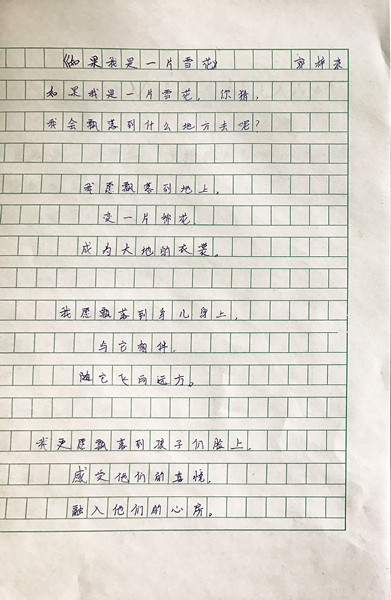 《如果我是一片雪花》
如果我是一片雪花，你猜，
我会飘落到什么地方去呢？
我愿飘落到地上，
变一片棉花
成为大地的衣裳。
我愿飘落到鸟儿身上，
与它相伴，
随它飞向远方。
我更愿飘落到孩子们脸上，
感受他们的喜悦，
融入他们的心房。